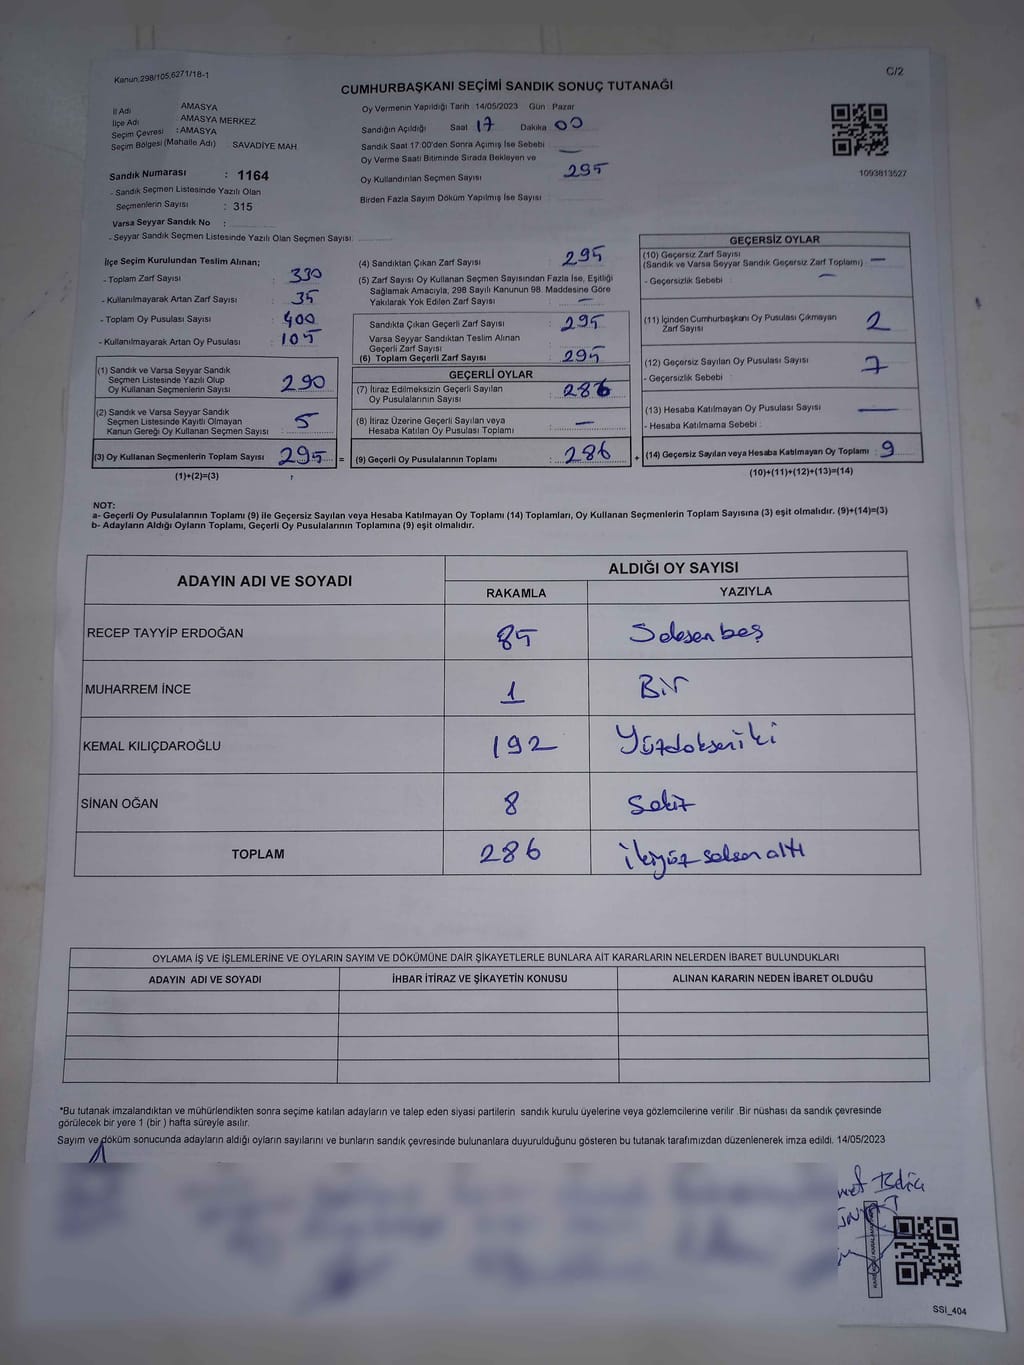 Kanun.298/105,6271/18-1
C/2
CUMHURBAŞKANI SEÇİMİ SANDIK SONUÇ TUTANAĞI
İl Adı : AMASYA
İlçe Adı : AMASYA MERKEZ
Seçim Çevresi : AMASYA
Seçim Bölgesi (Mahalle Adı) : SAVADİYE MAH
Sandık Numarası : 1164
- Sandık Seçmen Listesinde Yazılı Olan
Seçmenlerin Sayısı : 315
Varsa Seyyar Sandık No :
- Seyyar Sandık Seçmen Listesinde Yazılı Olan Seçmen Sayısı:
Oy Vermenin Yapıldığı Tarih : 14/05/2023 Gün : Pazar
Sandığın Açıldığı Saat 17 Dakika 00
Sandık Saat 17:00'den Sonra Açımış İse Sebebi : —
Oy Verme Saati Bitiminde Sırada Bekleyen ve
Oy Kullandırılan Seçmen Sayısı : 295
Birden Fazla Sayım Döküm Yapılmış İse Sayısı :
1093813527
İlçe Seçim Kurulundan Teslim Alınan;
- Toplam Zarf Sayısı : 330
- Kullanılmayarak Artan Zarf Sayısı : 35
- Toplam Oy Pusulası Sayısı : 400
- Kullanılmayarak Artan Oy Pusulası : 105
(1) Sandık ve Varsa Seyyar Sandık
Seçmen Listesinde Yazılı Olup
Oy Kullanan Seçmenlerin Sayısı : 290
(2) Sandık ve Varsa Seyyar Sandık
Seçmen Listesinde Kayıtlı Olmayan
Kanun Gereği Oy Kullanan Seçmen Sayısı : 5
(3) Oy Kullanan Seçmenlerin Toplam Sayısı : 295 =
(1)+(2)=(3)
(4) Sandıktan Çıkan Zarf Sayısı : 295
(5) Zarf Sayısı Oy Kullanan Seçmen Sayısından Fazla İse, Eşitliği
Sağlamak Amacıyla, 298 Sayılı Kanunun 98. Maddesine Göre
Yakılarak Yok Edilen Zarf Sayısı : —
Sandıkta Çıkan Geçerli Zarf Sayısı : 295
Varsa Seyyar Sandıktan Teslim Alınan
Geçerli Zarf Sayısı :
(6) Toplam Geçerli Zarf Sayısı : 295
GEÇERLİ OYLAR
(7) İtiraz Edilmeksizin Geçerli Sayılan
Oy Pusulalarının Sayısı : 286
(8) İtiraz Üzerine Geçerli Sayılan veya
Hesaba Katılan Oy Pusulası Toplamı : —
(9) Geçerli Oy Pusulalarının Toplamı : 286 +
GEÇERSİZ OYLAR
(10) Geçersiz Zarf Sayısı
(Sandık ve Varsa Seyyar Sandık Geçersiz Zarf Toplamı) : —
- Geçersizlik Sebebi : —
(11) İçinden Cumhurbaşkanı Oy Pusulası Çıkmayan
Zarf Sayısı : 2
(12) Geçersiz Sayılan Oy Pusulası Sayısı : 7
- Geçersizlik Sebebi :
(13) Hesaba Katılmayan Oy Pusulası Sayısı : —
- Hesaba Katılmama Sebebi :
(14) Geçersiz Sayılan veya Hesaba Katılmayan Oy Toplamı : 9
(10)+(11)+(12)+(13)=(14)
NOT:
a- Geçerli Oy Pusulalarının Toplamı (9) ile Geçersiz Sayılan veya Hesaba Katılmayan Oy Toplamı (14) Toplamları, Oy Kullanan Seçmenlerin Toplam Sayısına (3) eşit olmalıdır. (9)+(14)=(3)
b- Adayların Aldığı Oyların Toplamı, Geçerli Oy Pusulalarının Toplamına (9) eşit olmalıdır.
ADAYIN ADI VE SOYADI ALDIĞI OY SAYISI
RAKAMLA YAZIYLA
RECEP TAYYİP ERDOĞAN 85 Seksenbeş
MUHARREM İNCE 1 Bir
KEMAL KILIÇDAROĞLU 192 Yüzdoksaniki
SİNAN OĞAN 8 Sekiz
TOPLAM 286 İkiyüz seksen altı
OYLAMA İŞ VE İŞLEMLERİNE VE OYLARIN SAYIM VE DÖKÜMÜNE DAİR ŞİKAYETLERLE BUNLARA AİT KARARLARIN NELERDEN İBARET BULUNDUKLARI
ADAYIN ADI VE SOYADI İHBAR İTİRAZ VE ŞİKAYETİN KONUSU ALINAN KARARIN NEDEN İBARET OLDUĞU
*Bu tutanak imzalandıktan ve mühürlendikten sonra seçime katılan adayların ve talep eden siyasi partilerin sandık kurulu üyelerine veya gözlemcilerine verilir. Bir nüshası da sandık çevresinde
görülecek bir yere 1 (bir ) hafta süreyle asılır.
Sayım ve döküm sonucunda adayların aldığı oyların sayılarını ve bunların sandık çevresinde bulunanlara duyurulduğunu gösteren bu tutanak tarafımızdan düzenlenerek imza edildi. 14/05/2023
SSİ_404